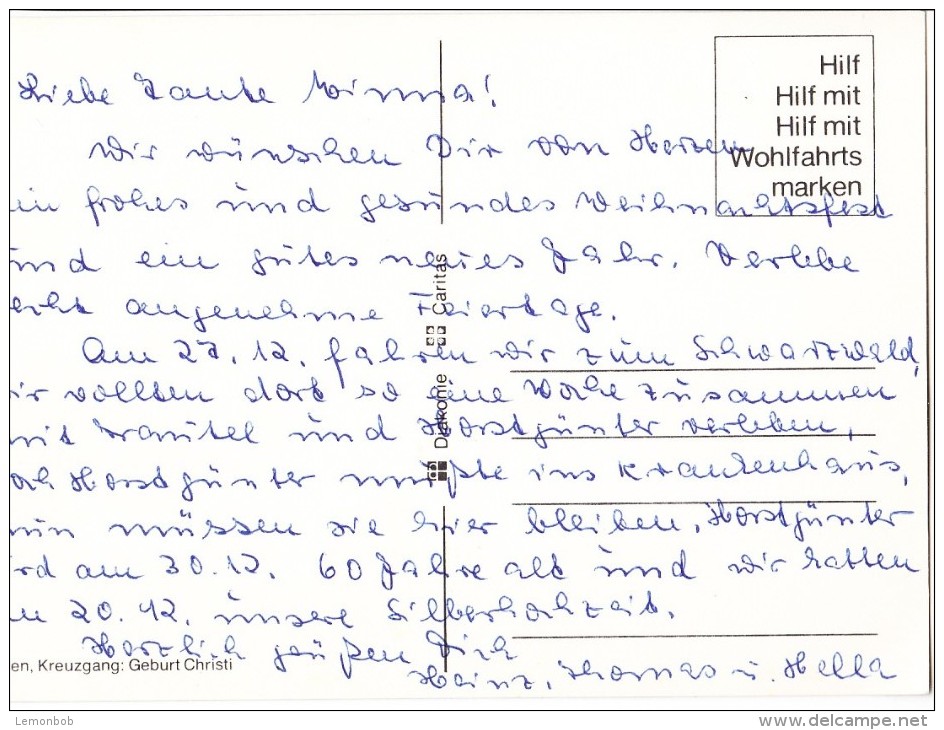 Hilf
Hilf mit
Hilf mit
Wohlfahrts
marken
Liebe Tante Minna!
Wir wünschen Dir von Herzen
ein frohes und gesundes Weihnachtsfest
und ein gutes neues Jahr. Verlebe
recht angenehme Feiertage.
Am 27.12. fahren wir zum Schwarzwald,
wir wollten dort so eine Woche zusammen
mit Trautel und Horstgünter verleben,
doch Horstgünter mußte ins Krankenhaus,
nun müssen sie hier bleiben. Horstgünter
wird am 30.12. 60 Jahre alt und wir hatten
am 20.12. unsere Silberhochzeit.
Herzlich grüßen Dich
Heinz, Thomas u. Hella
Diakonie Caritas
en, Kreuzgang: Geburt Christi
Lemonbob
www.delcampe.net